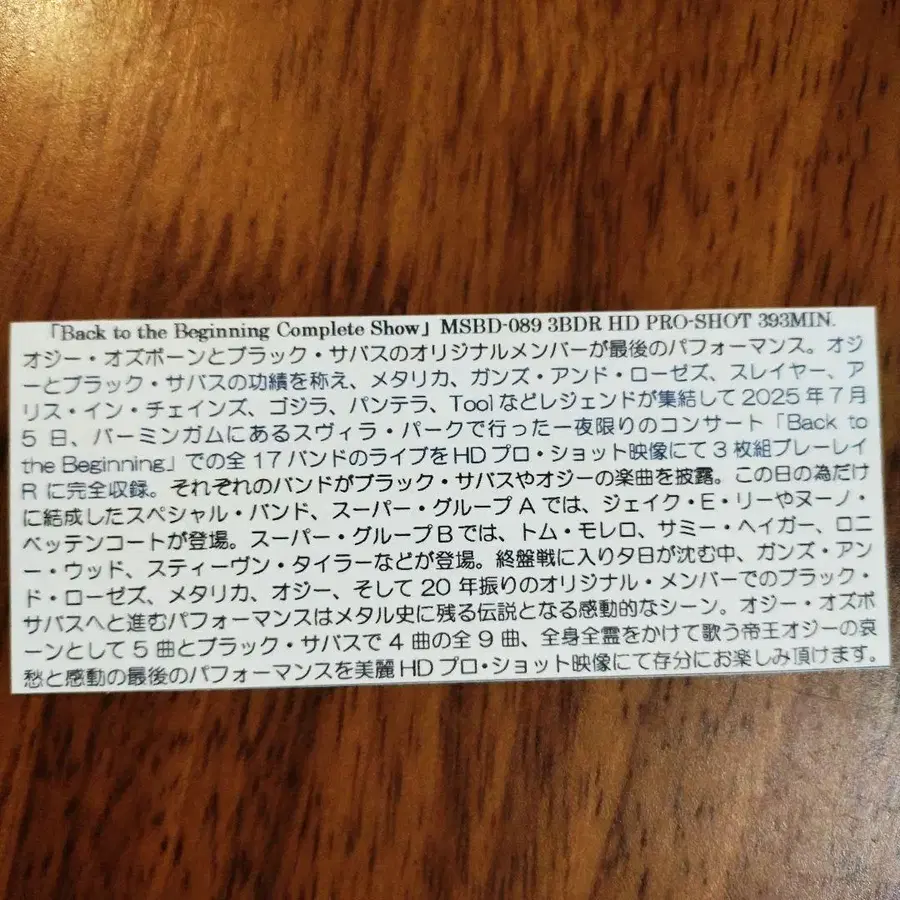 「Back to the Beginning Complete Show」MSBD-089 3BDR HD PRO-SHOT 393MIN.
オジー・オズボーンとブラック・サバスのオリジナルメンバーが最後のパフォーマンス。オジ
ーとブラック・サバスの功績を称え、メタリカ、ガンズ・アンド・ローゼズ、スレイヤー、ア
リス・イン・チェインズ、ゴジラ、パンテラ、Toolなどレジェンドが集結して2025年7月
5日、バーミンガムにあるスヴィラ・パークで行った一夜限りのコンサート「Back to
the Beginning」での全17バンドのライブをHDプロ・ショット映像にて3枚組ブルーレイ
Rに完全収録。それぞれのバンドがブラック・サバスやオジーの楽曲を披露。この日の為だけ
に結成したスペシャル・バンド、スーパー・グループAでは、ジェイク・E・リーやヌーノ・
ベッテンコートが登場。スーパー・グループBでは、トム・モレロ、サミー・ヘイガー、ロニ
ー・ウッド、スティーヴン・タイラーなどが登場。終盤戦に入り夕日が沈む中、ガンズ・アン
ド・ローゼズ、メタリカ、オジー、そして20年振りのオリジナル・メンバーでのブラック・
サバスへと進むパフォーマンスはメタル史に残る伝説となる感動的なシーン。オジー・オズボ
ーンとして5曲とブラック・サバスで4曲の全9曲、全身全霊をかけて歌う帝王オジーの哀
愁と感動の最後のパフォーマンスを美麗HDプロ・ショット映像にて存分にお楽しみ頂けます。